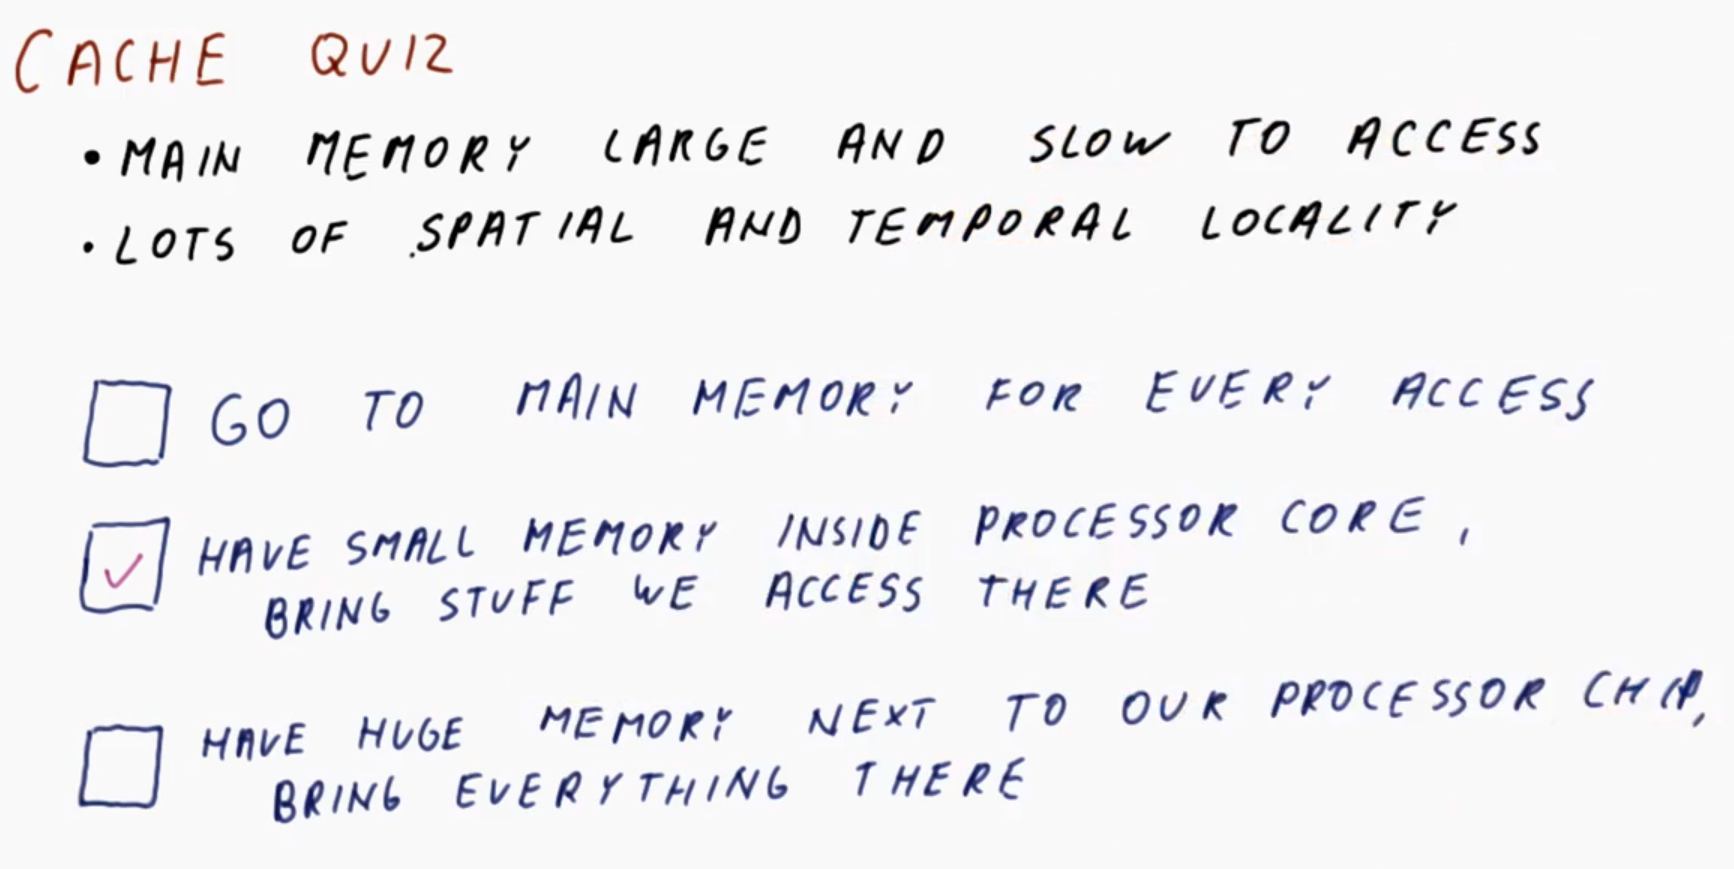 CACHE QUIZ
• MAIN MEMORY LARGE AND SLOW TO ACCESS
• LOTS OF SPATIAL AND TEMPORAL LOCALITY
GO TO MAIN MEMORY FOR EVERY ACCESS
HAVE SMALL MEMORY INSIDE PROCESSOR CORE,
BRING STUFF WE ACCESS THERE
HAVE HUGE MEMORY NEXT TO OUR PROCESSOR CHIP,
BRING EVERYTHING THERE